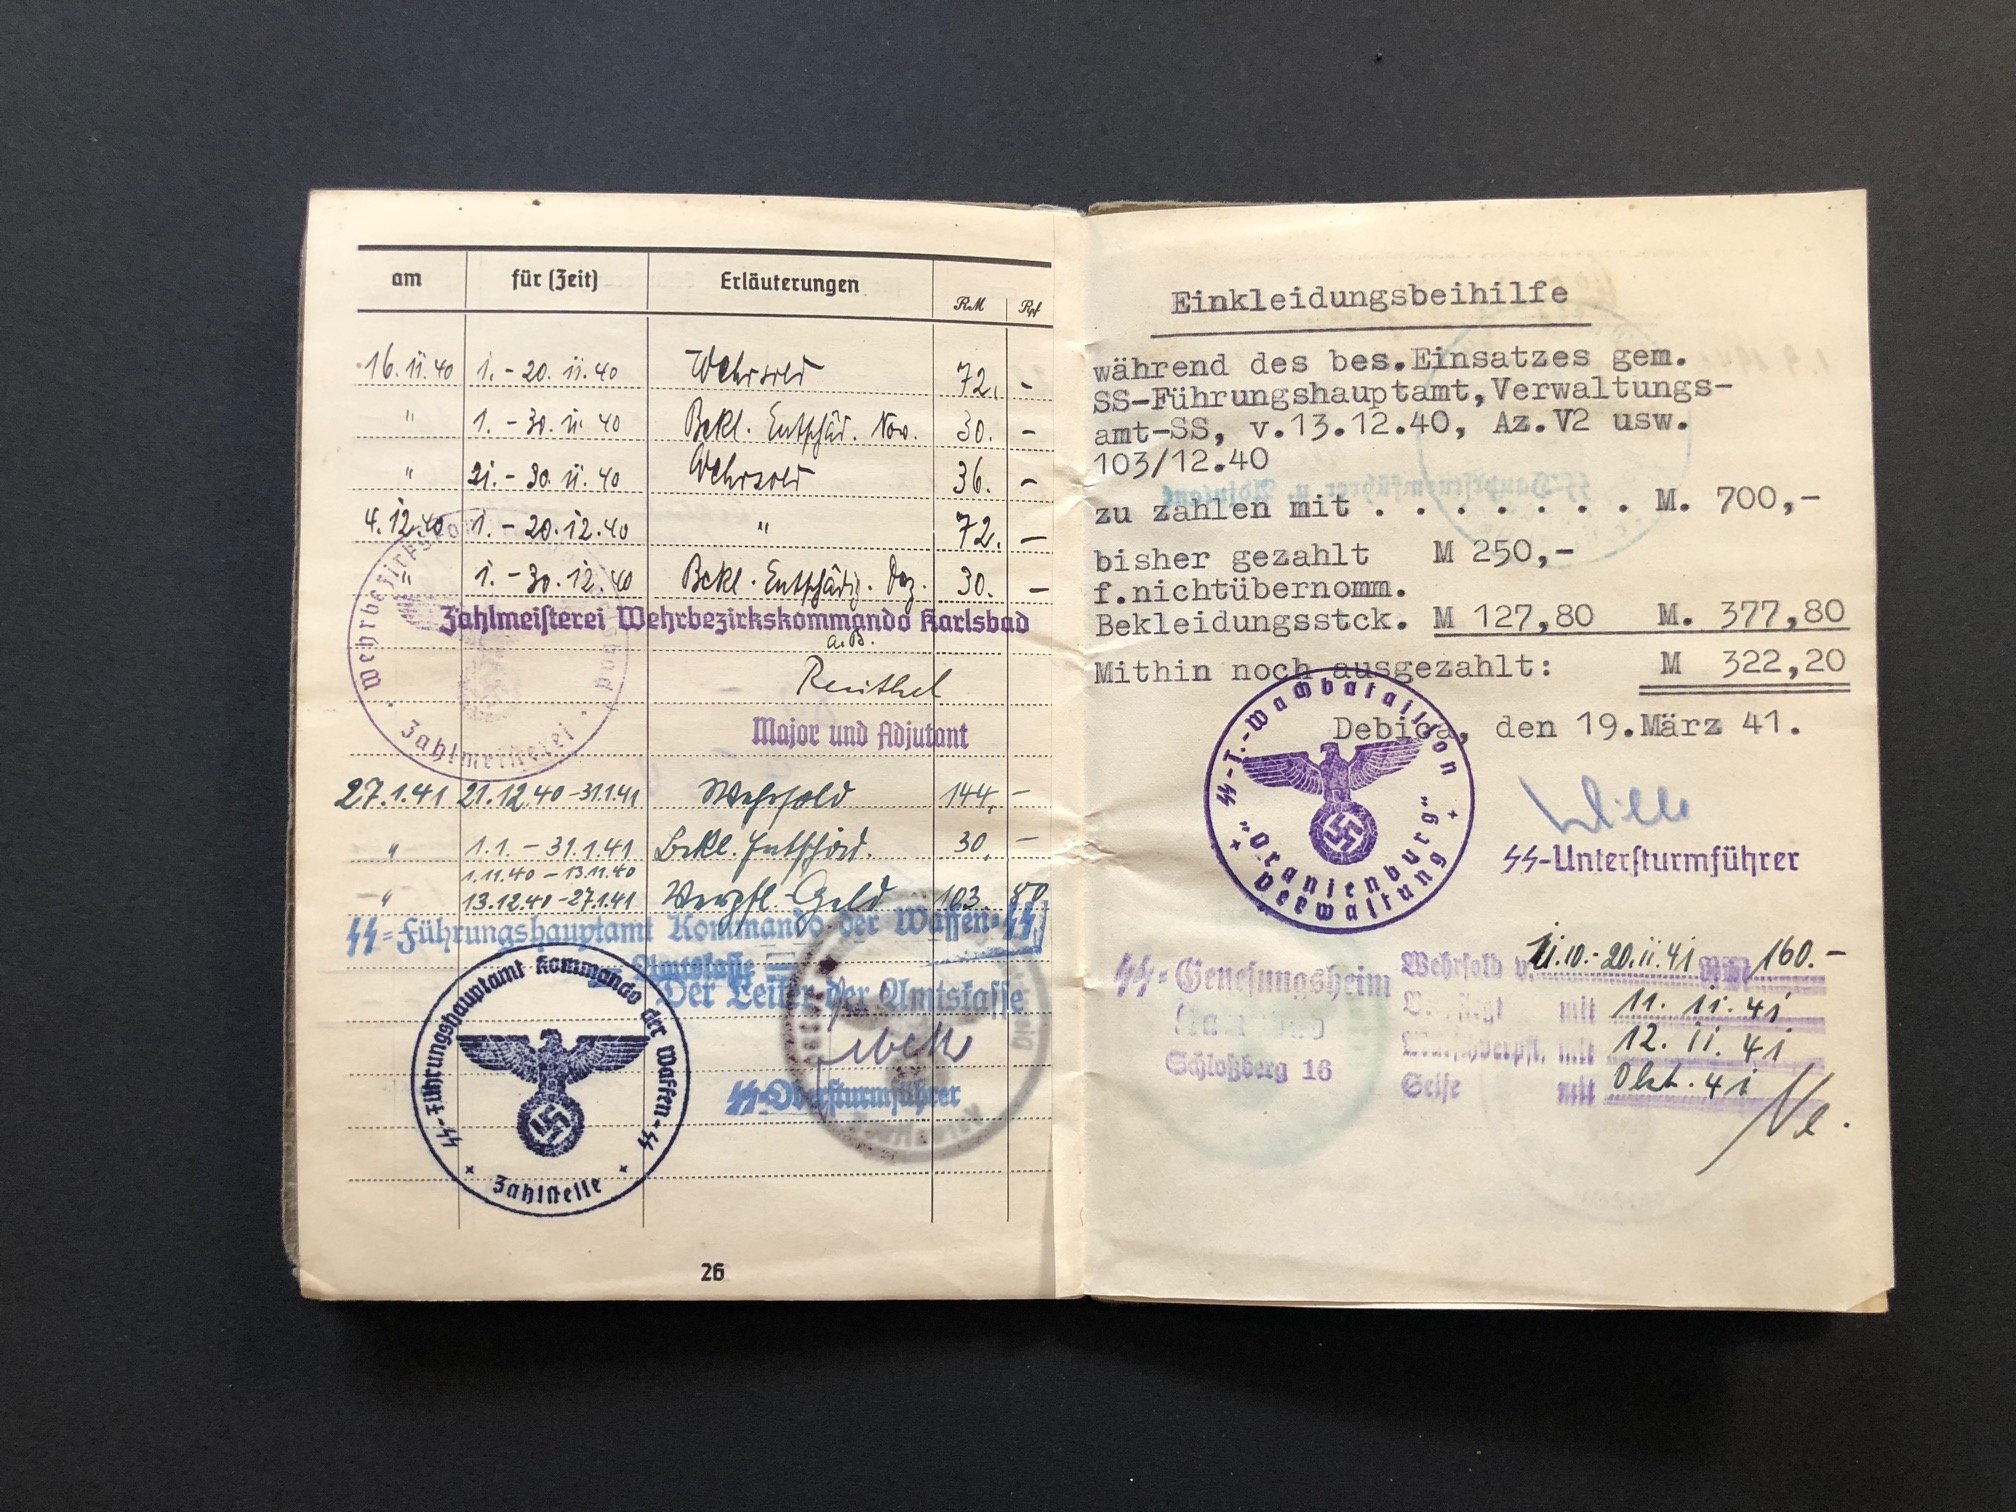 am für (Zeit) Erläuterungen RM Rpf
16.11.40 1.-20.11.40 Wehrsold 72. -
" 1.-30.11.40 Bekl. Entschäd. Nov. 30. -
" 21.-30.11.40 Wehrsold 36. -
4.12.40 1.-20.12.40 " 72. -
" 1.-30.12.40 Bekl. Entschädig. Dez. 30. -
Zahlmeisterei Wehrbezirkskommando Karlsbad
a.B.
Major und Adjutant
Zahlmeisterei
27.1.41 21.12.40-31.1.41 Wehrsold 144. -
" 1.1.-31.1.41 Bekl. Entschäd. 30. -
1.11.40-13.11.40
" 13.12.40-27.1.41 Verpfl.-Geld 103. 80
SS-Führungshauptamt Kommando der Waffen-SS
Amtskasse
Der Leiter der Amtskasse
SS-Obersturmführer
SS-Führungshauptamt Kommando der Waffen-SS
Zahlstelle
26
Einkleidungsbeihilfe
während des bes.Einsatzes gem.
SS-Führungshauptamt,Verwaltungs-
amt-SS, v.13.12.40, Az.V2 usw.
103/12.40
zu zahlen mit . . . . . . . M. 700,-
bisher gezahlt M 250,-
f.nichtübernomm.
Bekleidungsstck. M 127,80 M. 377,80
Mithin noch ausgezahlt: M 322,20
Debica, den 19.März 41.
SS-T.-Wachbataillon
"Oranienburg"
Verwaltung
SS-Untersturmführer
SS-Genesungsheim
Schloßberg 16
Wehrsold v. 11.10.-20.11.41 RM 160.-
mit 11.11.41
mit 12.11.41
Seife mit Okt. 41